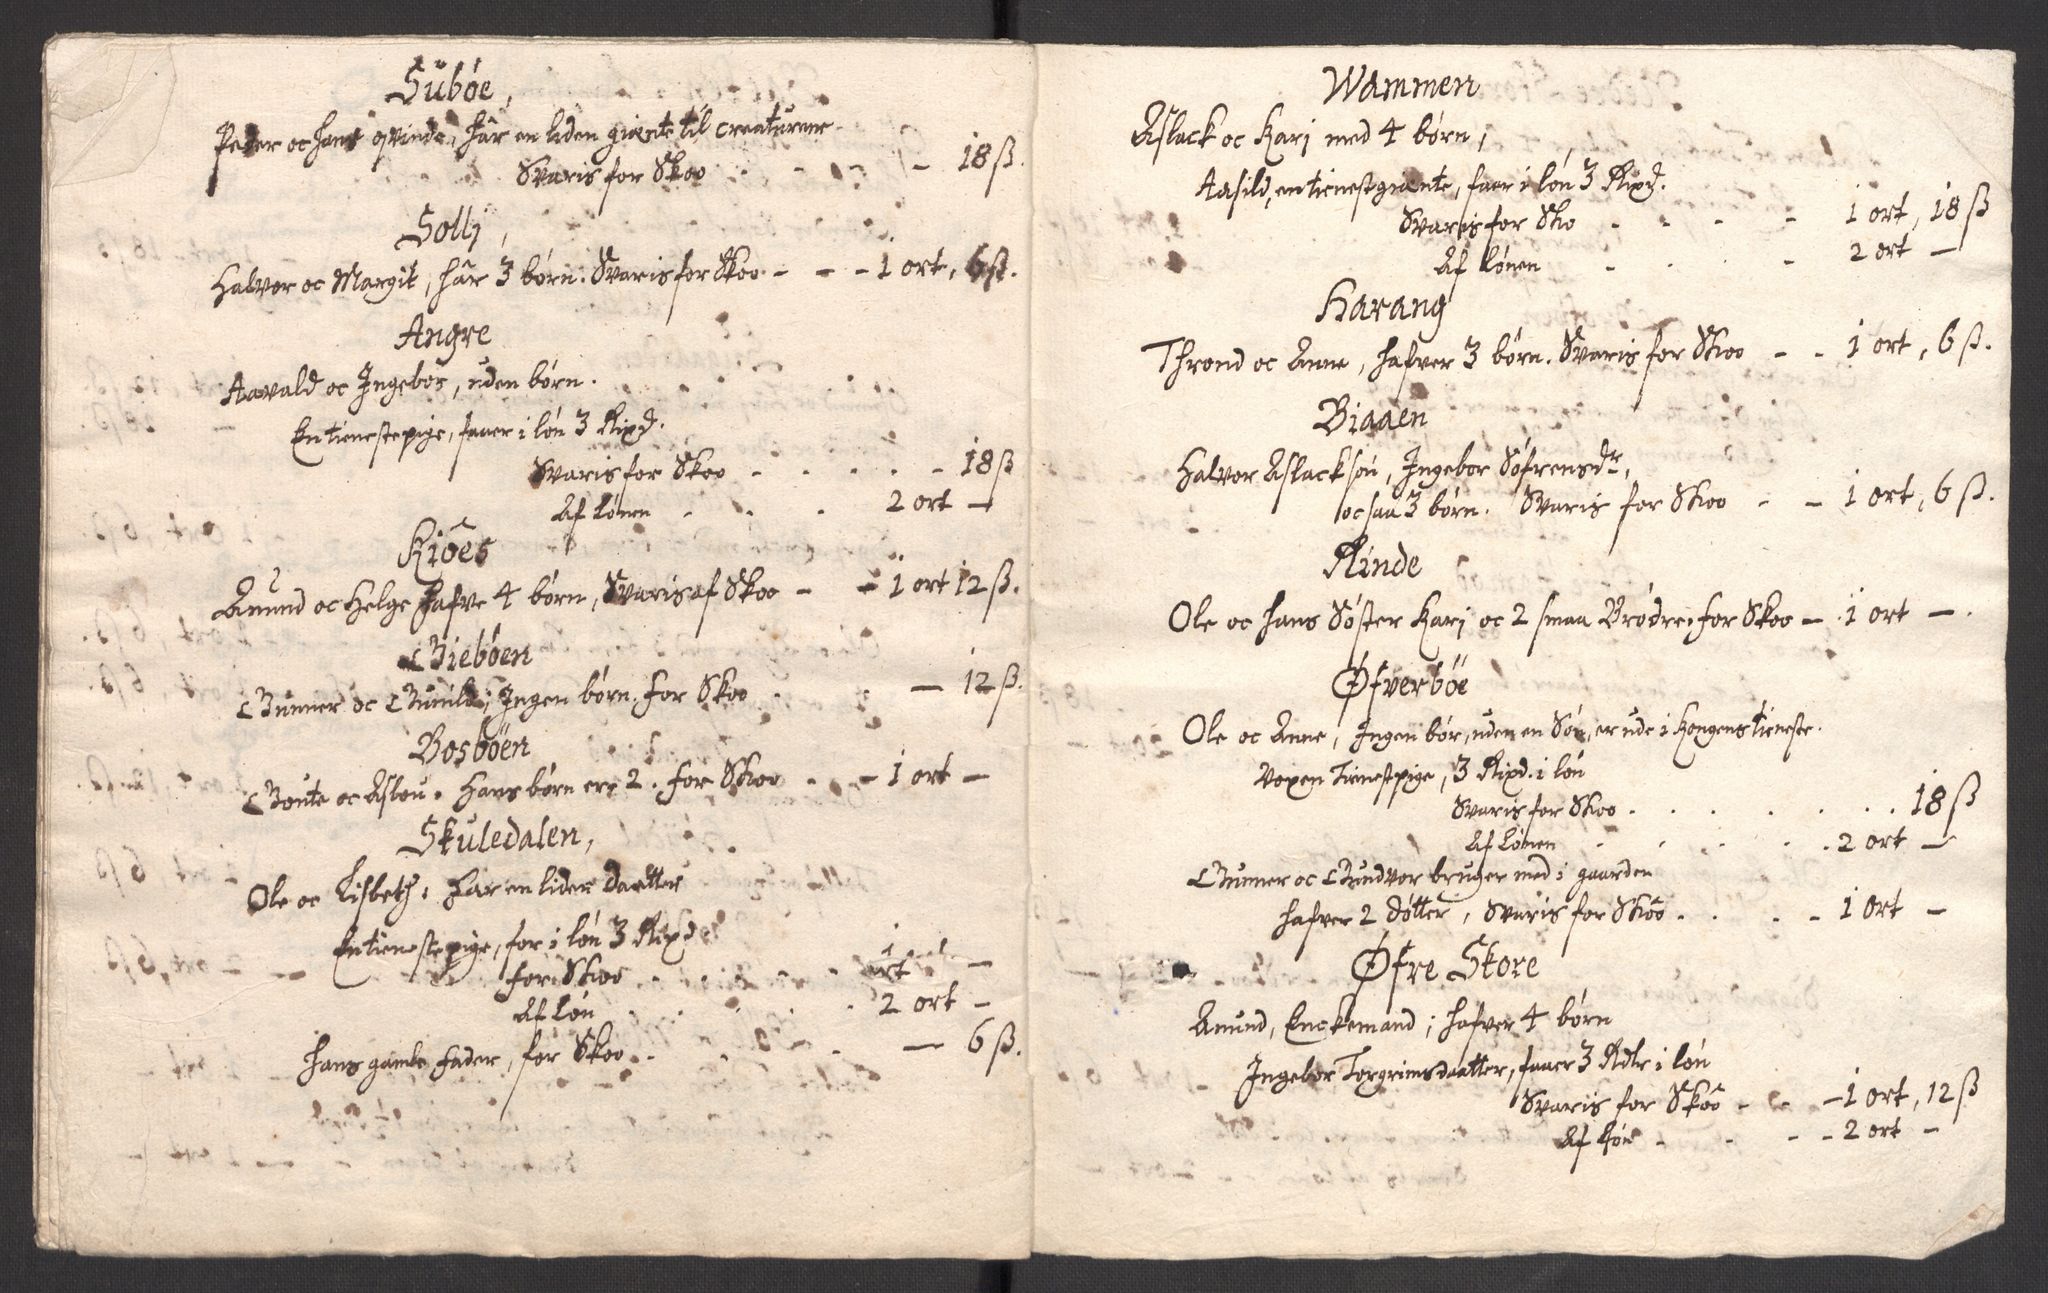 Sübøe,
Peder oc hans qvinde, hâr en liden giente til Creaturene
Svaris for Skoo - - - 18 ß.
Sollj,
Halvor oc Margit, hâr 3 børn. Svaris for Skoo - - - 1 ort, 6 ß.
Angre
Aavald oc Ingebor, uden børn.
En tienestepige, faaer i løn 3 Rixd.
Svaris for Skoo - - - 18 ß
Af Lønen - - - 2 ort -
Kiôes
Amund oc Helge hafve 4 børn, Svaris af Skoo - - 1 ort 12 ß.
Giebøen
Gunner oc Gunild; Ingen børn. for Skoo - - 12 ß.
Bosbøen
Goute oc Aslou. Hans børn ere 2. for Skoo - - 1 ort -
Skuledalen,
Ole oc Lisbeth. har en liden daatter
En tienestepige, for i løn 3 Rixd
for Skoo - - - 1 ort -
Af Løn - - - 2 ort -
Hans gamle fader, for Skoo - - - 6 ß.
Wammen
Aslack oc Karj med 4 børn,
Aasild, en tienestgiente, faar i løn 3 Rixd.
Svaris for Sko - - - 1 ort, 18 ß
Af Lønen - - - 2 ort -
Harang
Thrond oc Anne, hafver 3 børn. Svaris for Skoo - - 1 ort, 6 ß.
Biaaen
Halvor Aslacksøn, Ingebor Søfrensdr,
oc saa 3 børn. Svaris for Skoo - - 1 ort, 6 ß.
Rinde
Ole oc hans Søster Karj oc 2 smaa Brødre. for Skoo - 1 ort -.
Øfverbøe
Ole oc Anne, Ingen bør, uden en Søn, er ude i Kongens tieneste.
Voxen Tienestpige, 3 Rixd. i løn
Svaris for Skoo - - - 18 ß
Af Lønen - - - 2 ort -
Gunner oc Gundvor bruger med i gaarden
hafver 2 døtter, Svaris for Skoo - - - 1 ort -
Øfre Skore
Amund, Enckemand; hafver 4 børn
Ingebor Torgrimsdaatter, faaer 3 Rdlr i løn
Svaris for Skoo - - - 1 ort, 12 ß
Af Løn - - - 2 ort -